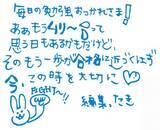 毎日の勉強おつかれさま!
ああもうムリ〜って
思う日もあるかもだけど、
そのもう一歩が合格に近づくはず
今、この時を大切に
FIGHT〜!
編集・たき